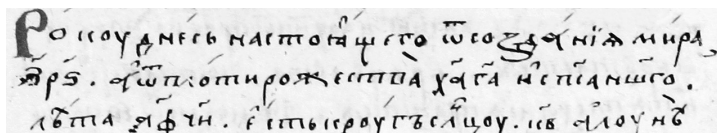 Рокоу днесь настоѧщего ѿ созданїѧ мира
҂зр҃ѕ . а҆ ѿ рожества х҃а г҃а
лѣта ҂а҃фч҃и . є҆сть кроугъ сл҃цоу . к҃в а҆ лоунѣ